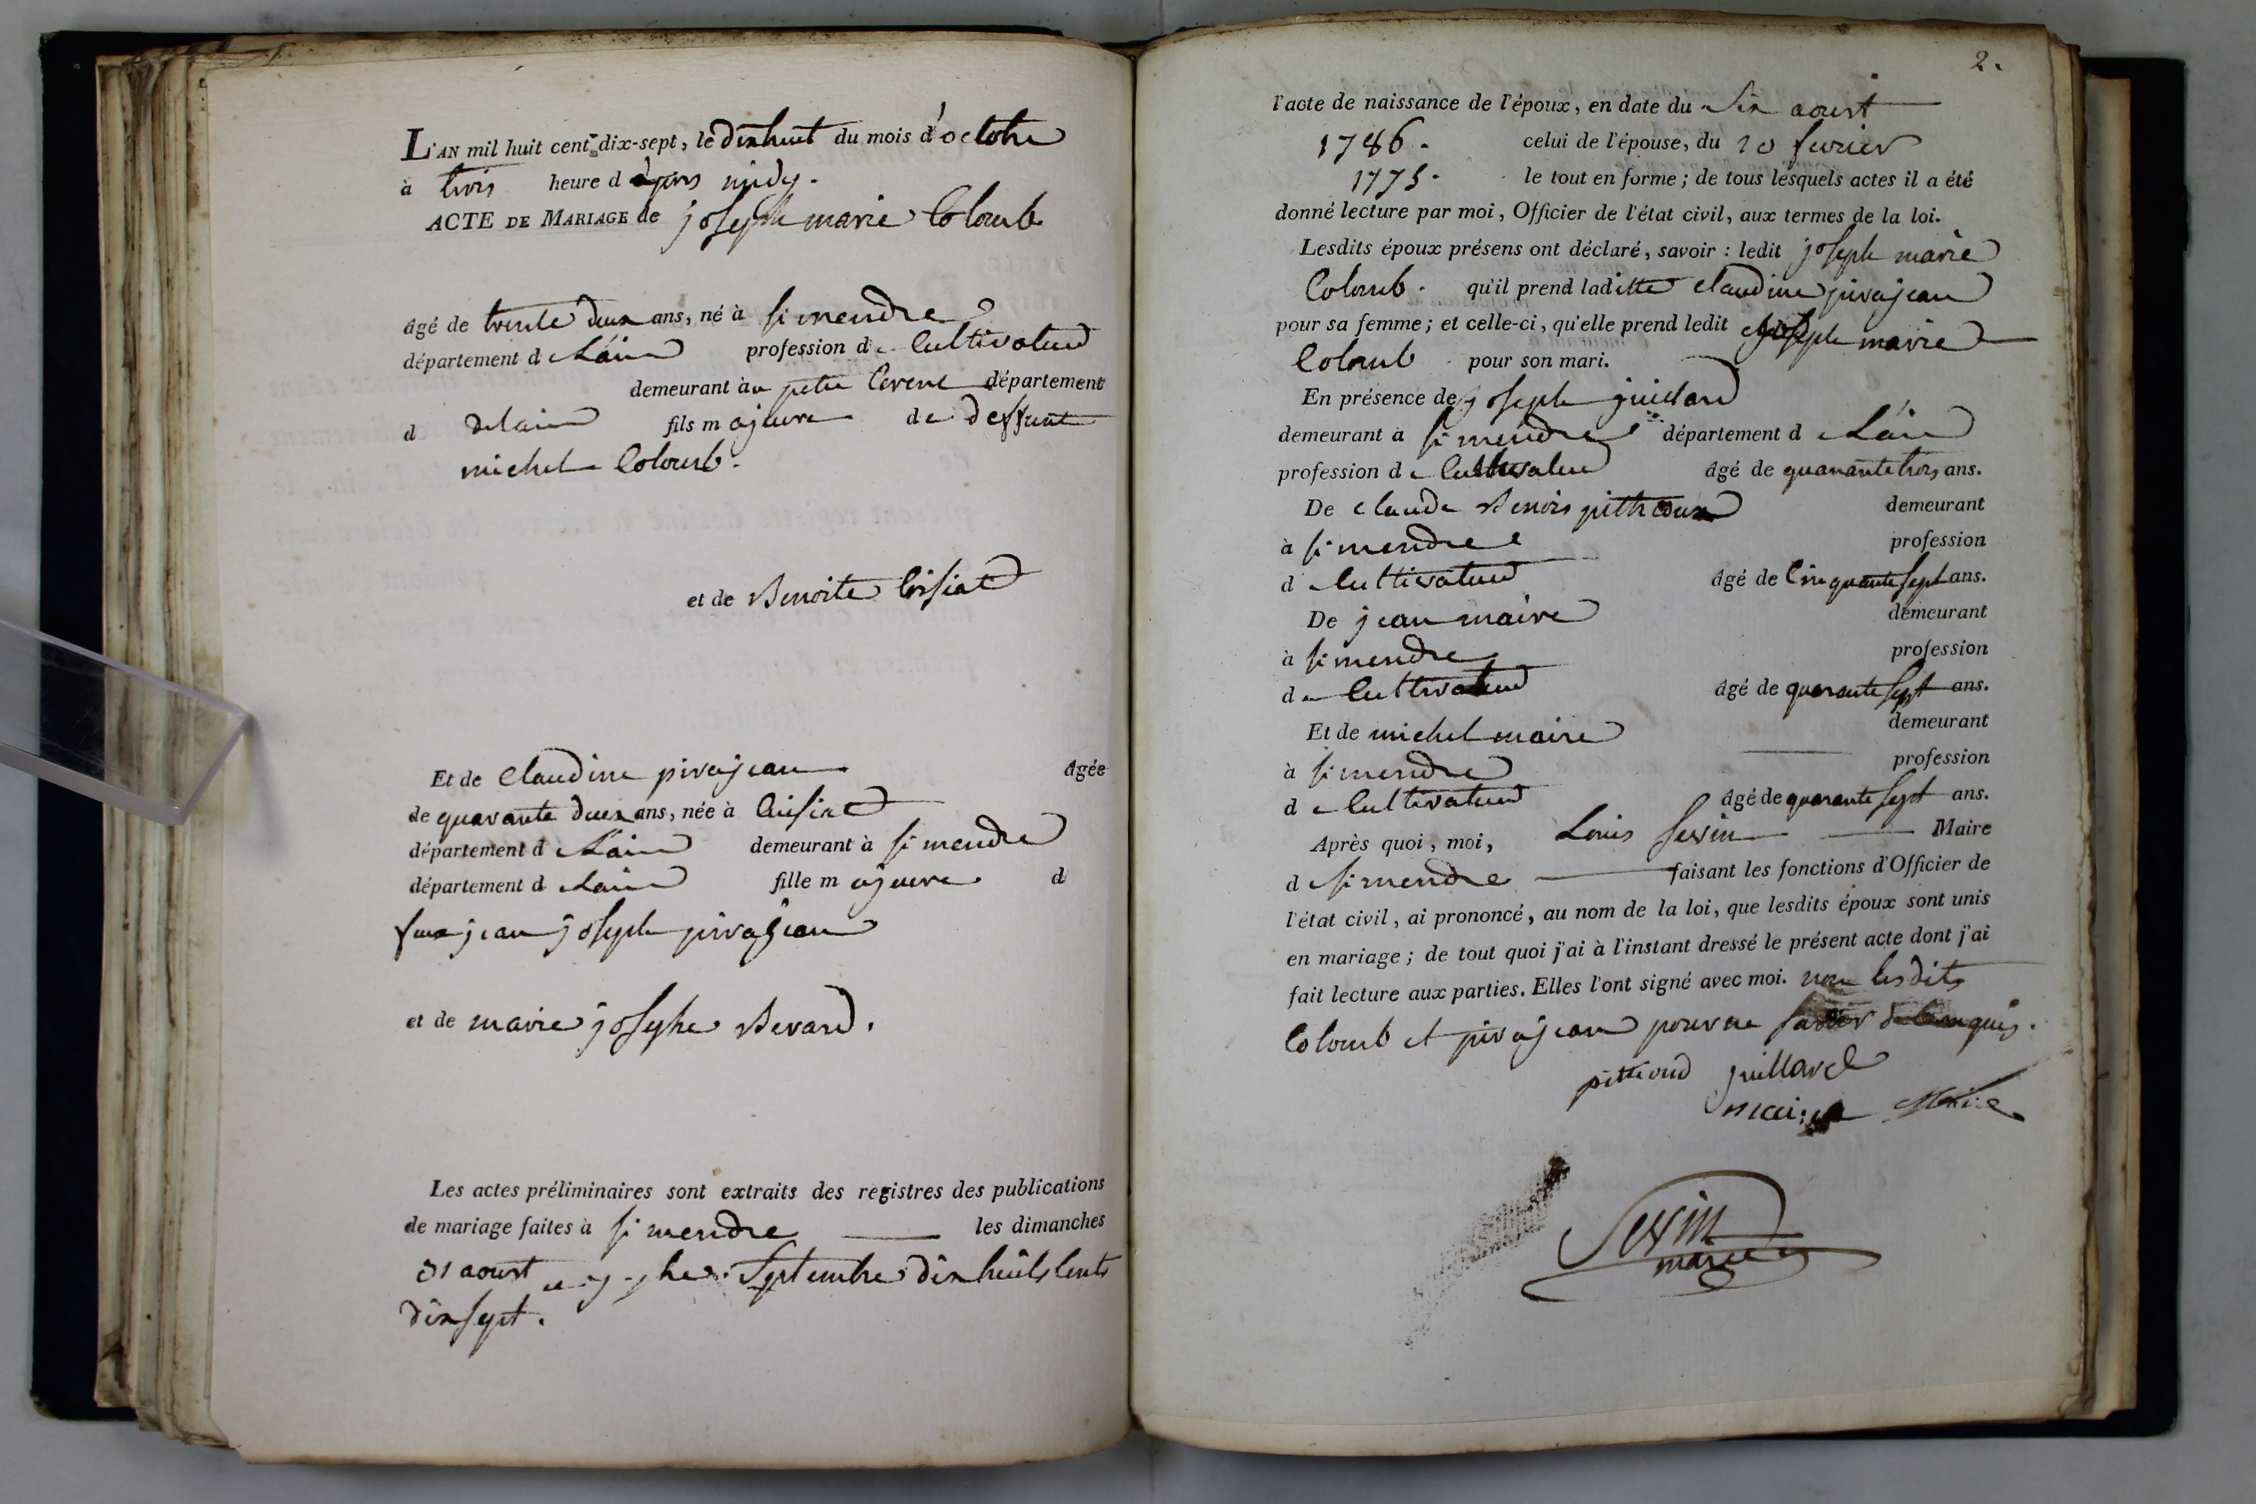 L'AN mil huit cent dix-sept, le dixhuit du mois d'octobre
à trois heure d apres midy.
ACTE DE MARIAGE de joseph marie Colomb
âgé de trente deux ans, né à simendre
département d Lain profession de Cultivateur
demeurant au petit Corent département
d delain fils majeure de deffunt
michel Colomb.
et de Benoite Cuisiat
Et de Claudine pirajean âgée
de quarante deux ans, née à Cuisiat
département d Lain demeurant à simendre
département d Lain fille majeure d
feux jean joseph pirajean
et de marie josephe Bevard.
Les actes préliminaires sont extraits des registres des publications
de mariage faites à simendre les dimanches
31 aoust et Septembre dix huits Cents
dix sept.
2.
l'acte de naissance de l'époux, en date du Six aoust
1786. celui de l'épouse, du 20 fevrier
1775. le tout en forme; de tous lesquels actes il a été
donné lecture par moi, Officier de l'état civil, aux termes de la loi.
Lesdits époux présens ont déclaré, savoir : ledit joseph marie
Colomb. qu'il prend laditte Claudine pirajean
pour sa femme; et celle-ci, qu'elle prend ledit joseph marie
Colomb pour son mari.
En présence de joseph guillard
demeurant à simendre département d Lain
profession de Cultivateur âgé de quarante trois ans.
De claude Benois pithioud demeurant
à simendre profession
de Cultivateur âgé de Cinquante sept ans.
De jean maire demeurant
à simendre profession
de Cultivateur âgé de quarante sept ans.
Et de michel maire demeurant
à simendre profession
de Cultivateur âgé de quarante sept ans.
Après quoi, moi, Louis Sevin Maire
de simendre faisant les fonctions d'Officier de
l'état civil, ai prononcé, au nom de la loi, que lesdits époux sont unis
en mariage; de tout quoi j'ai à l'instant dressé le présent acte dont j'ai
fait lecture aux parties. Elles l'ont signé avec moi. non lesdits
Colomb et pirajean pour ne savoir de ce enquis.
pithioud guillard
maire Maire
Sevin
maire